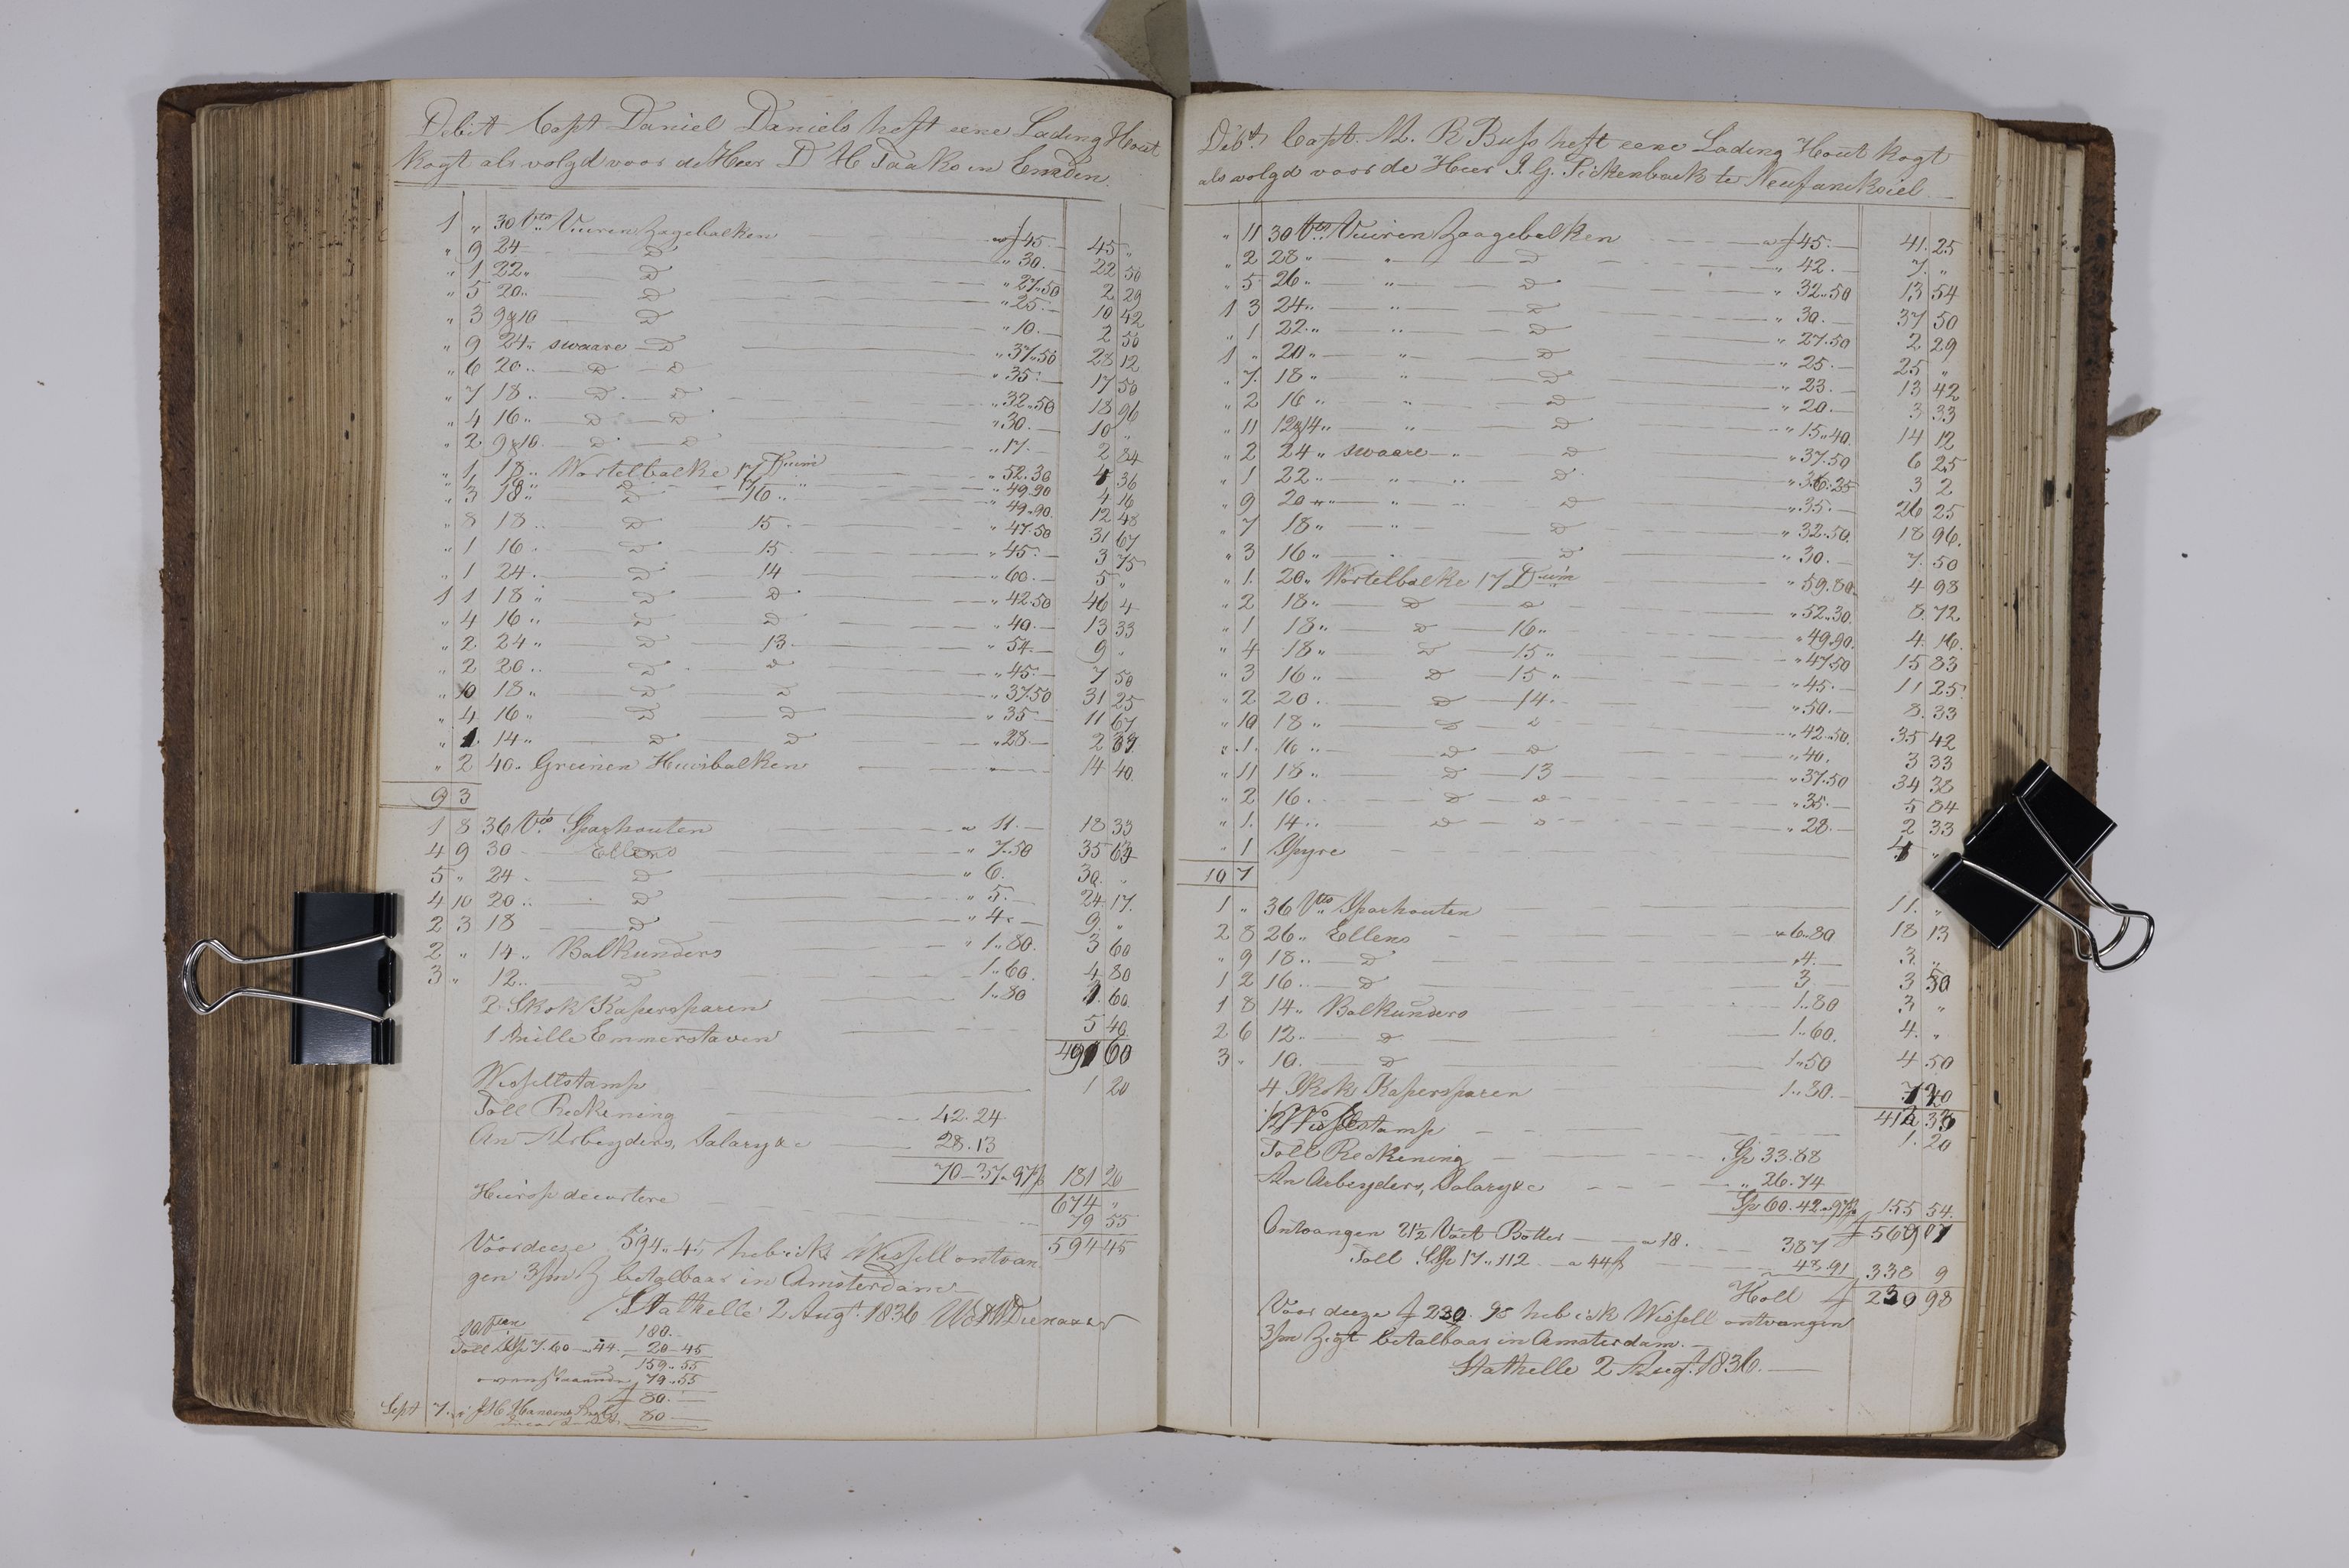 Debit Capt Daniel Daniels heft eene Lading Hout
kogt als volgd voor de Heer D H Taaks in Emden.
1 " 30 Vts Vuuren Zagebalken a f 45.— 45 "
" 9 24 D " 30.— 22 50
" 1 22 " D " 27.50 2 29
" 5 20 " D " 25.— 10 42
" 3 9 & 10 D " 10.— 2 50
" 9 24 " swaare D " 37.50 28 12
" 6 20 " D D " 35.— 17 50
" 7 18 " D D " 32.50 18 96
" 4 16 " D D " 30.— 10 "
" 2 9 & 10 D D " 17.— 2 84
" 1 18 " Wortelbalke 17 Duim " 52.30 4 36
" 1 18 " D 16 " " 49.90 4 16
" 3 18 " " 49.90 12 48
" 8 18 " D 15 " 47.50 31 67
" 1 16 " D 15 " 45.— 3 75
" 1 24 " D 14 " 60.— 5 "
1 1 18 " D D " 42.50 46 4
" 4 16 " D D " 40.— 13 33
" 2 24 " D 13 " 54.— 9 "
" 2 20 " D D " 45.— 7 50
" 10 18 " D D " 37.50 31 25
" 4 16 " D D " 35.— 11 67
" 1 14 " D D " 28.— 2 33
" 2 40 " Greinen Huisbalken 14 40
9 3
1 8 36 Vts Sparhouten a 11.— 18 33
4 9 30 Ellens " 7.50 35 63
5 " 24 D " 6. 30. "
4 10 20 " D " 5.— 24 17
2 3 18 D " 4.— 9 "
2 " 14 " Balkunders " 1.80 3 60
3 " 12 " D 1.60 4 80
2 Skok Kapersparen 1.80 3 60
1 Mille Emmerstaven 5 40
491 60
Wissellstamp 1 20
Toll Reckening 42.24
An Arbeyders, Salary &c 28.13
70—37 a 97 ß 181 26
674 "
Hiirop decortere 79 55
594 45
Voor deeze 594 " 45 heb ick Wissell ontvan
gen 3/m Z betalbaar in Amsterdam
Stathelle 2 Augt 1836
180.—
Toll Sp 7.60 a 44. 20—45
159 " 55
79 " 55
f 80.—
Sept 7. 80.—
Debt Capt. M. R Buss heft eene Lading Hout kogt
als volgd voor de Heer J. G. Pickenback te Neufanksiel
" 11 30 Vts Vuuren Zaagebalken a f 45.— 41 25
" 2 28 " " D " 42.— 7 "
" 5 26 " " D " 32.50 13 54
1 3 24 " " D " 30.— 37 50
" 1 22 " " D " 27.50 2 29
1 " 20 " " D " 25.— 25 "
" 7 18 " " D " 23.— 13 42
" 2 16 " " D " 20.— 3 33
" 11 12 & 14 " " D " 15.40 14 12
" 2 24 " swaare " D " 37.50 6 25
" 1 22 " " " D " 36.25 3 2
" 9 20 " " " D " 35.— 26 25
" 7 18 " " D " 32.50 18 96
" 3 16 " " D " 30.— 7 50
" 1 20 " Wortelbalke 17 Duim " 59.80 4 98
" 2 18 " D D " 52.30 8 72
" 1 18 " D 16 " " 49.90 4 16
" 4 18 " D 15 " " 47.50 15 83
" 3 16 " D 15 " " 45.— 11 25
" 2 20 D 14 " 50.— 8 33
" 10 18 " D D " 42.50 35 42
" 1 16 " D D " 40. 3 33
" 11 18 " D 13 " 37.50 34 38
" 2 16 D D " 35.— 5 84
" 1 14 " D D " 28.— 2 33
" 1 Spyre 4 "
10 7
1 " 36 Vts Sparhouten 11. "
2 8 26 " Ellens " 6.80 18 13
" 9 18 " D " 4.— 3. "
1 2 16 " D 3 3 50
1 8 14 " Balkunders 1.80 3 "
2 6 12 " D 1.60 4. "
3 " 10 D 1.50 4 50
4 Skok Kapersparen 1.80.— 7 20
412 33
Wisselstamp 1.20
Toll Reckening Sp 33.88
An Arbeyders, Salary &c " 26.74
Sp 60.42 a 97 ß 155 54
f 569 07
Ontvangen 21½ Vaet Botter a 18. 387
Toll Sp 17 " 112 a 44 ß 48.91 338 9
Holl f 230 98
Voor deeze f 230. 98 heb ick Wissell ontvangen
3/m Zigt betalbaar in Amsterdam.—
Stathelle 2 Augt 1836.—